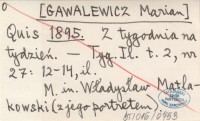 [GAWALEWICZ Marian]
Quis 1895. Z tygodnia na
tydzień. — Tyg. Il. t. 2, nr
27: 12-14, il.
M. in. Władysław Matla-
kowski (z jego portretem).